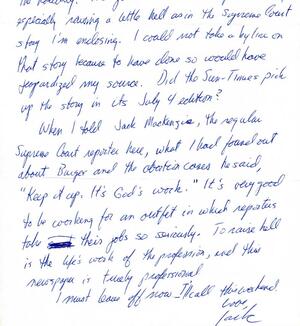 especially raising a little hell as in the Supreme Court
story I'm enclosing. I could not take a byline on
that story because to have done so would have
jeopardized my source. Did the Sun-Times pick
up the story in its July 4 edition?
When I told Jack Mackenzie, the regular
Supreme Court reporter here, what I had found out
about Burger and the abortion cases he said,
"Keep it up. It's God's work." It's very good
to be working for an outfit in which reporters
take their jobs so seriously. To raise hell
is the life's work of the profession, and this
newspaper is truly professional
I must leave off now. I'll call this weekend
Love,
Jack